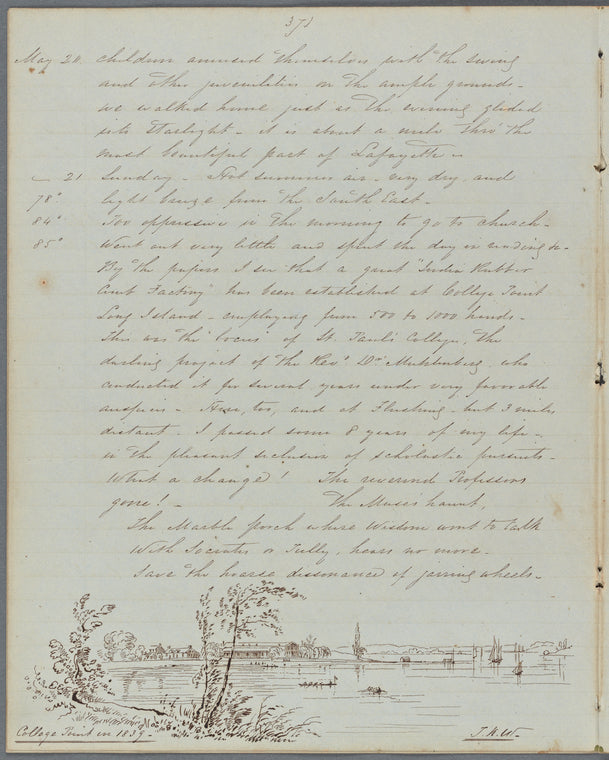 373
May 20. children amused themselves with the swing
and other juvenilities on the ample grounds -
we walked home just as the evening glided
into starlight - it is about a mile thro' the
most beautiful part of Lafayette -
— 21 Sunday - Hot summer air - very dry, and
78° light breeze from the South East -
84° Too oppressive in the morning to go to church -
85° Went out very little and spent the day in reading &c -
By the papers I see that a great "India Rubber
Factory" has been established at College Point
Long Island - employing from 500 to 1000 hands -
This was the "locus" of St. Paul's College, the
darling project of the Revd Dr Muhlenberg, who
conducted it for several years under very favorable
auspices - Here, too, and at Flushing - but 3 miles
distant - I passed some 8 years of my life -
in the pleasant seclusion of scholastic pursuits -
What a change! The reverend Professors
gone! - The Muses haunt,
The Marble porch where Wisdom wont to talk
With Socrates or Tully, hears no more -
Save the hoarse dissonance of jarring wheels -
College Point in 1839.